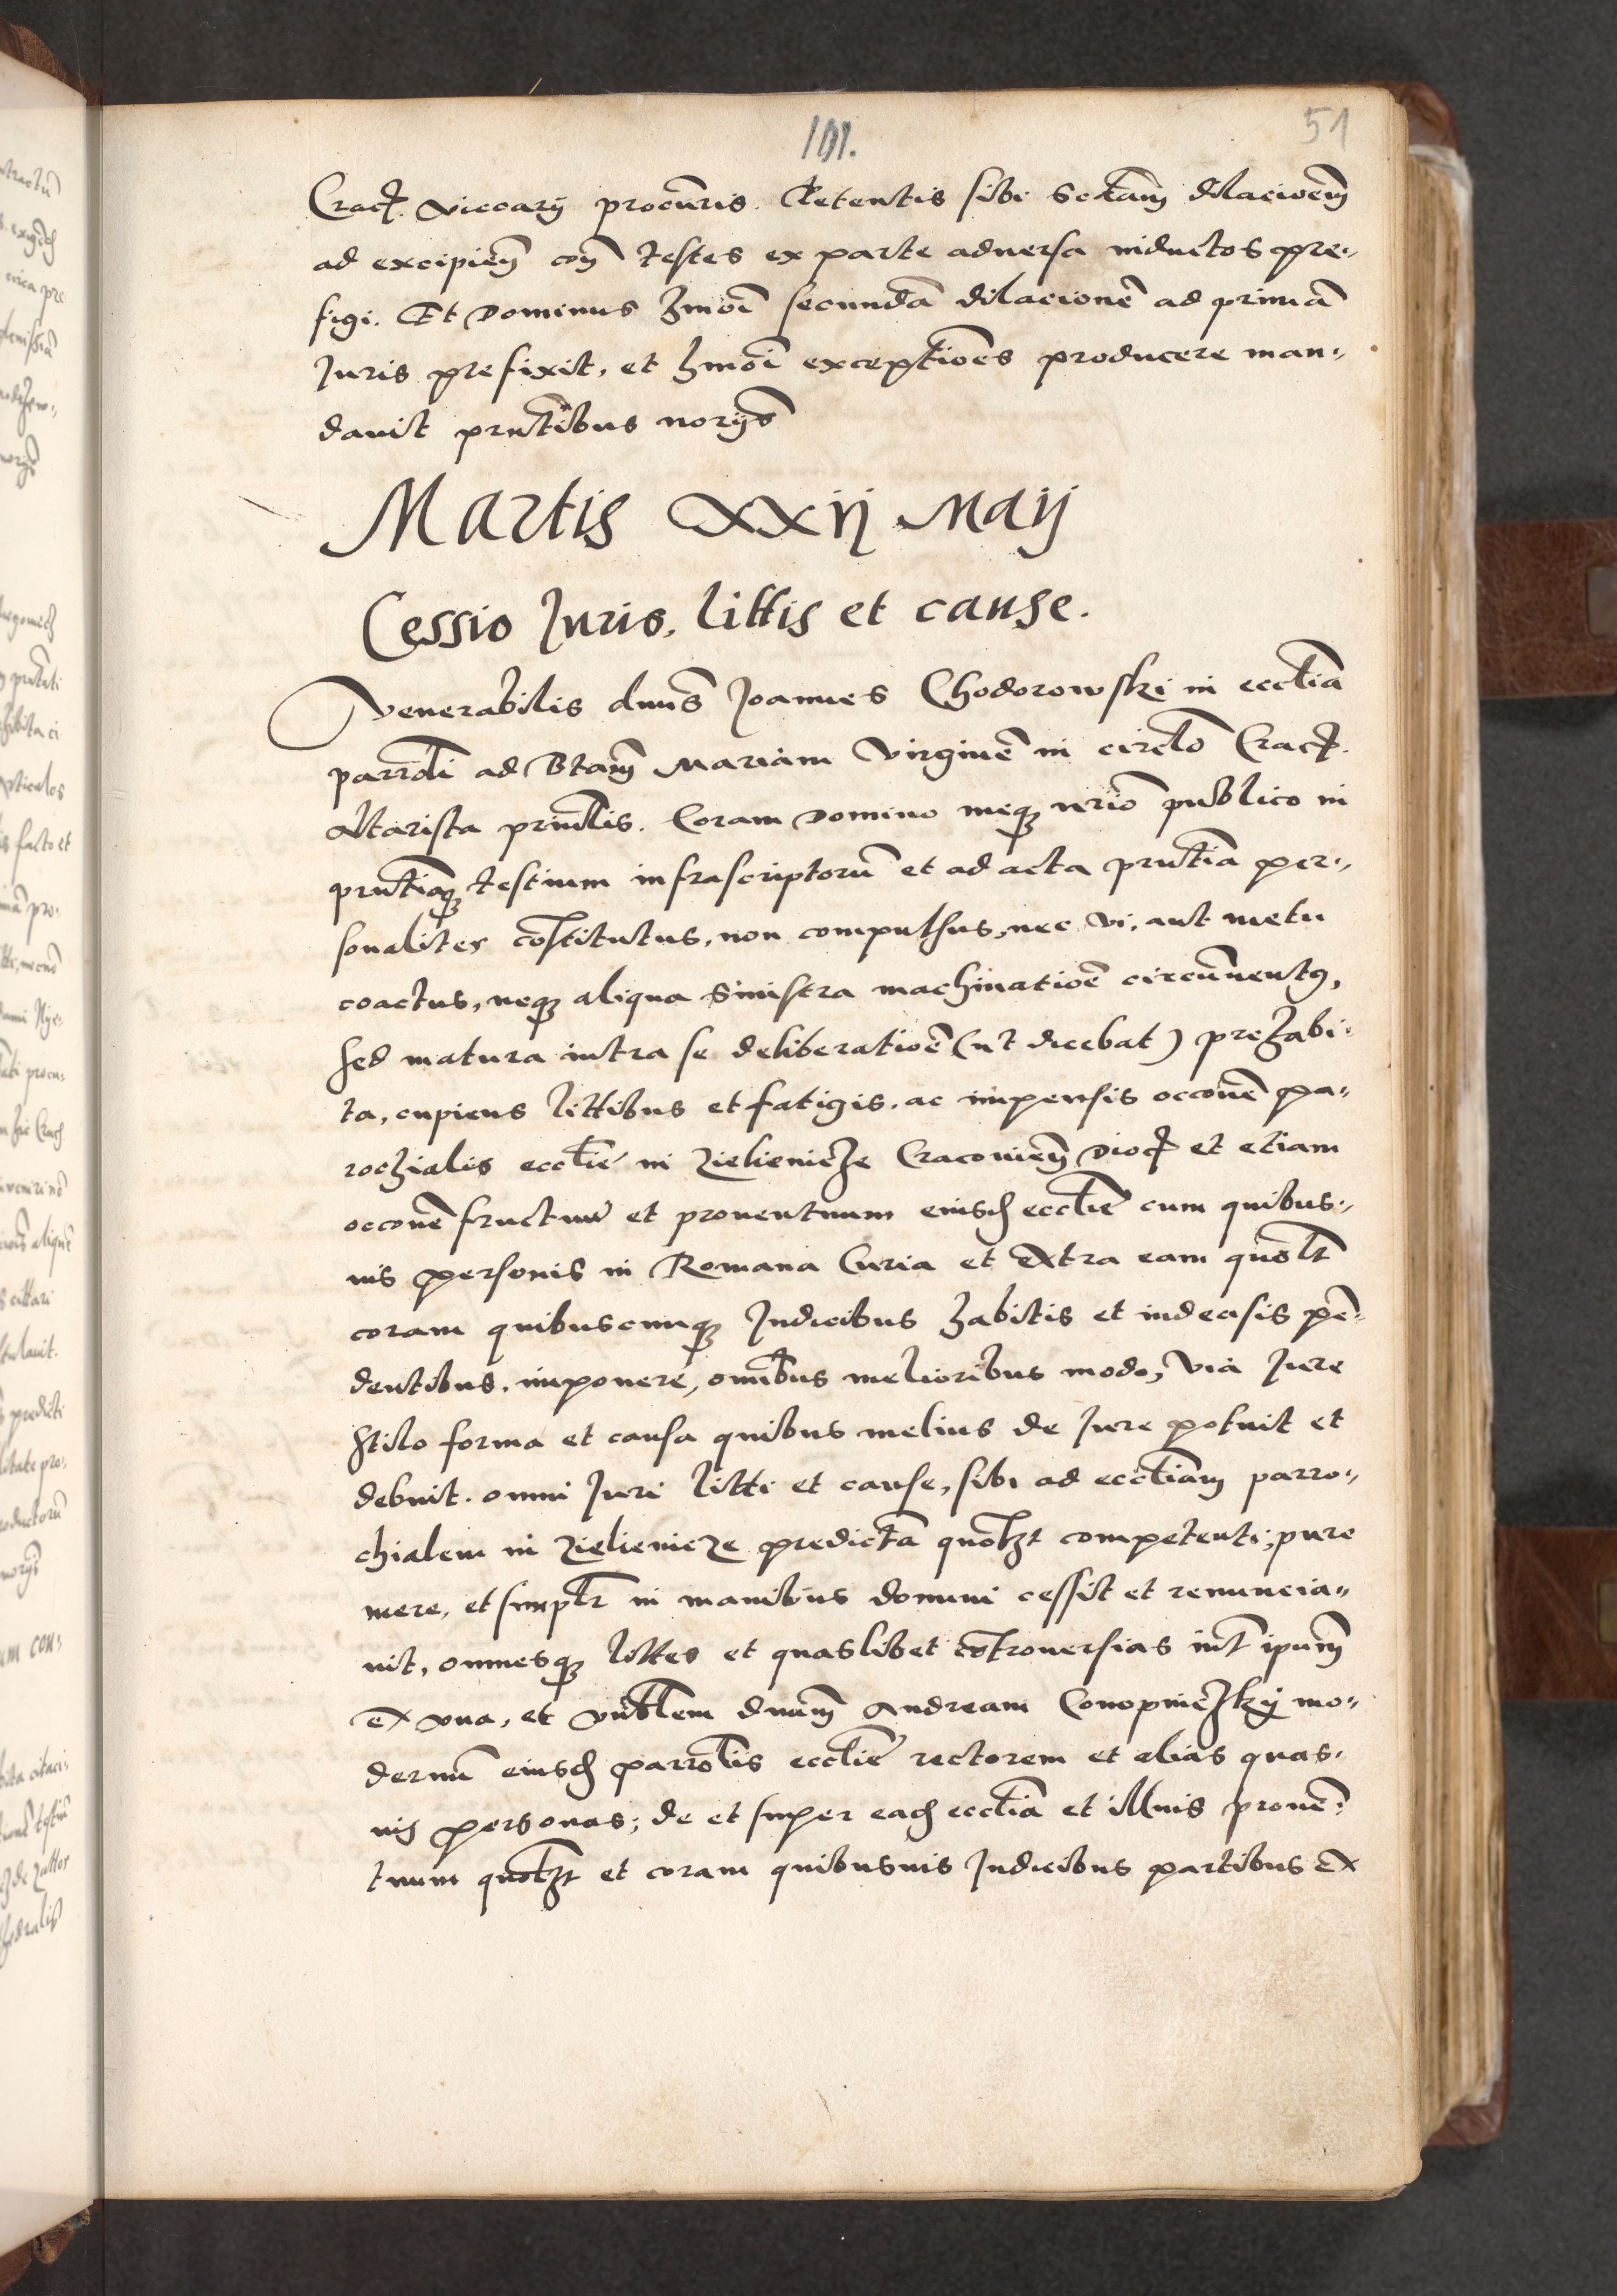 101.
51
Crac. Viccarÿ procuris. Petentis sibi Sctam dilacioem
ad excipiem con testes ex parte aduersa inductos pre„
figi. Et Dominus hmoi secundã dilacionẽ ad primã
Juris prefixit, et hmoi exceptioes producere man„
dauit pntibus norÿs
Martis xxij Maij
Cessio Juris, littis et cause.
Venerabilis dnus Joannes Chodorowski in ecclia
parrocli ad Btam Mariam Virginẽ in circlo Crac.
Altarista princlis. Coram Domino meqz nrio publico in
pntiaqz testium infrascriptorũ et ad acta pntia per„
sonaliter cõstitutus, non compulsus, nec vi, aut metu
coactus, neqz aliqua Sinistra machinatioẽ circũuentus,
sed matura intra se deliberatioẽ (ut dicebat) prehabi„
ta, cupiens littibus et fatigis, ac impensis occonẽ pa„
rochialis ecclie in Zielienicze Craconien Dioc et etiam
occonẽ fructuũ et prouentuum eiusd ecclie cum quibus„
uis personis in Romana Curia et extra eam quolt
coram quibuscunqz Judicibus habitis et indecisis pẽ„
dentibus, imponere, omnibus melioribus modo, via Jure
stilo forma et causa quibus melius de Jure potuit et
debuit. omni Juri litti et cause, sibi ad eccliam parro„
chialem in Zielienicze predictã quolzt competenti, pure
mere, et simplr in manibus domini cessit et renuncia„
uit, omnesqz littes et quaslibet cõtrouersias int ipum
ex vna, et vnblem dnum Andream Conopniczky mo„
dernũ eiusd parrolis ecclie rectorem et alias quas„
uis personas, de et super ead ecclia et illius prouẽ„
tuum quolzt et coram quibusuis Judicibus partibus ex